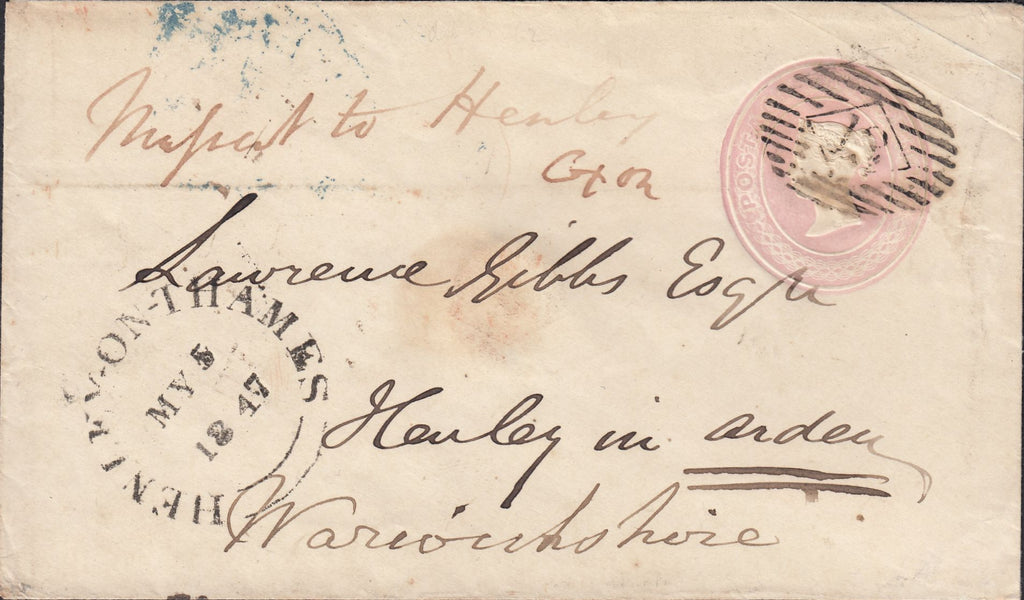 Missent to Henley
Oxon
POST
Lawrence Gibbs Esqre
HENLEY-ON-THAMES
MY 5
1847
Henley in arden
Warwickshire